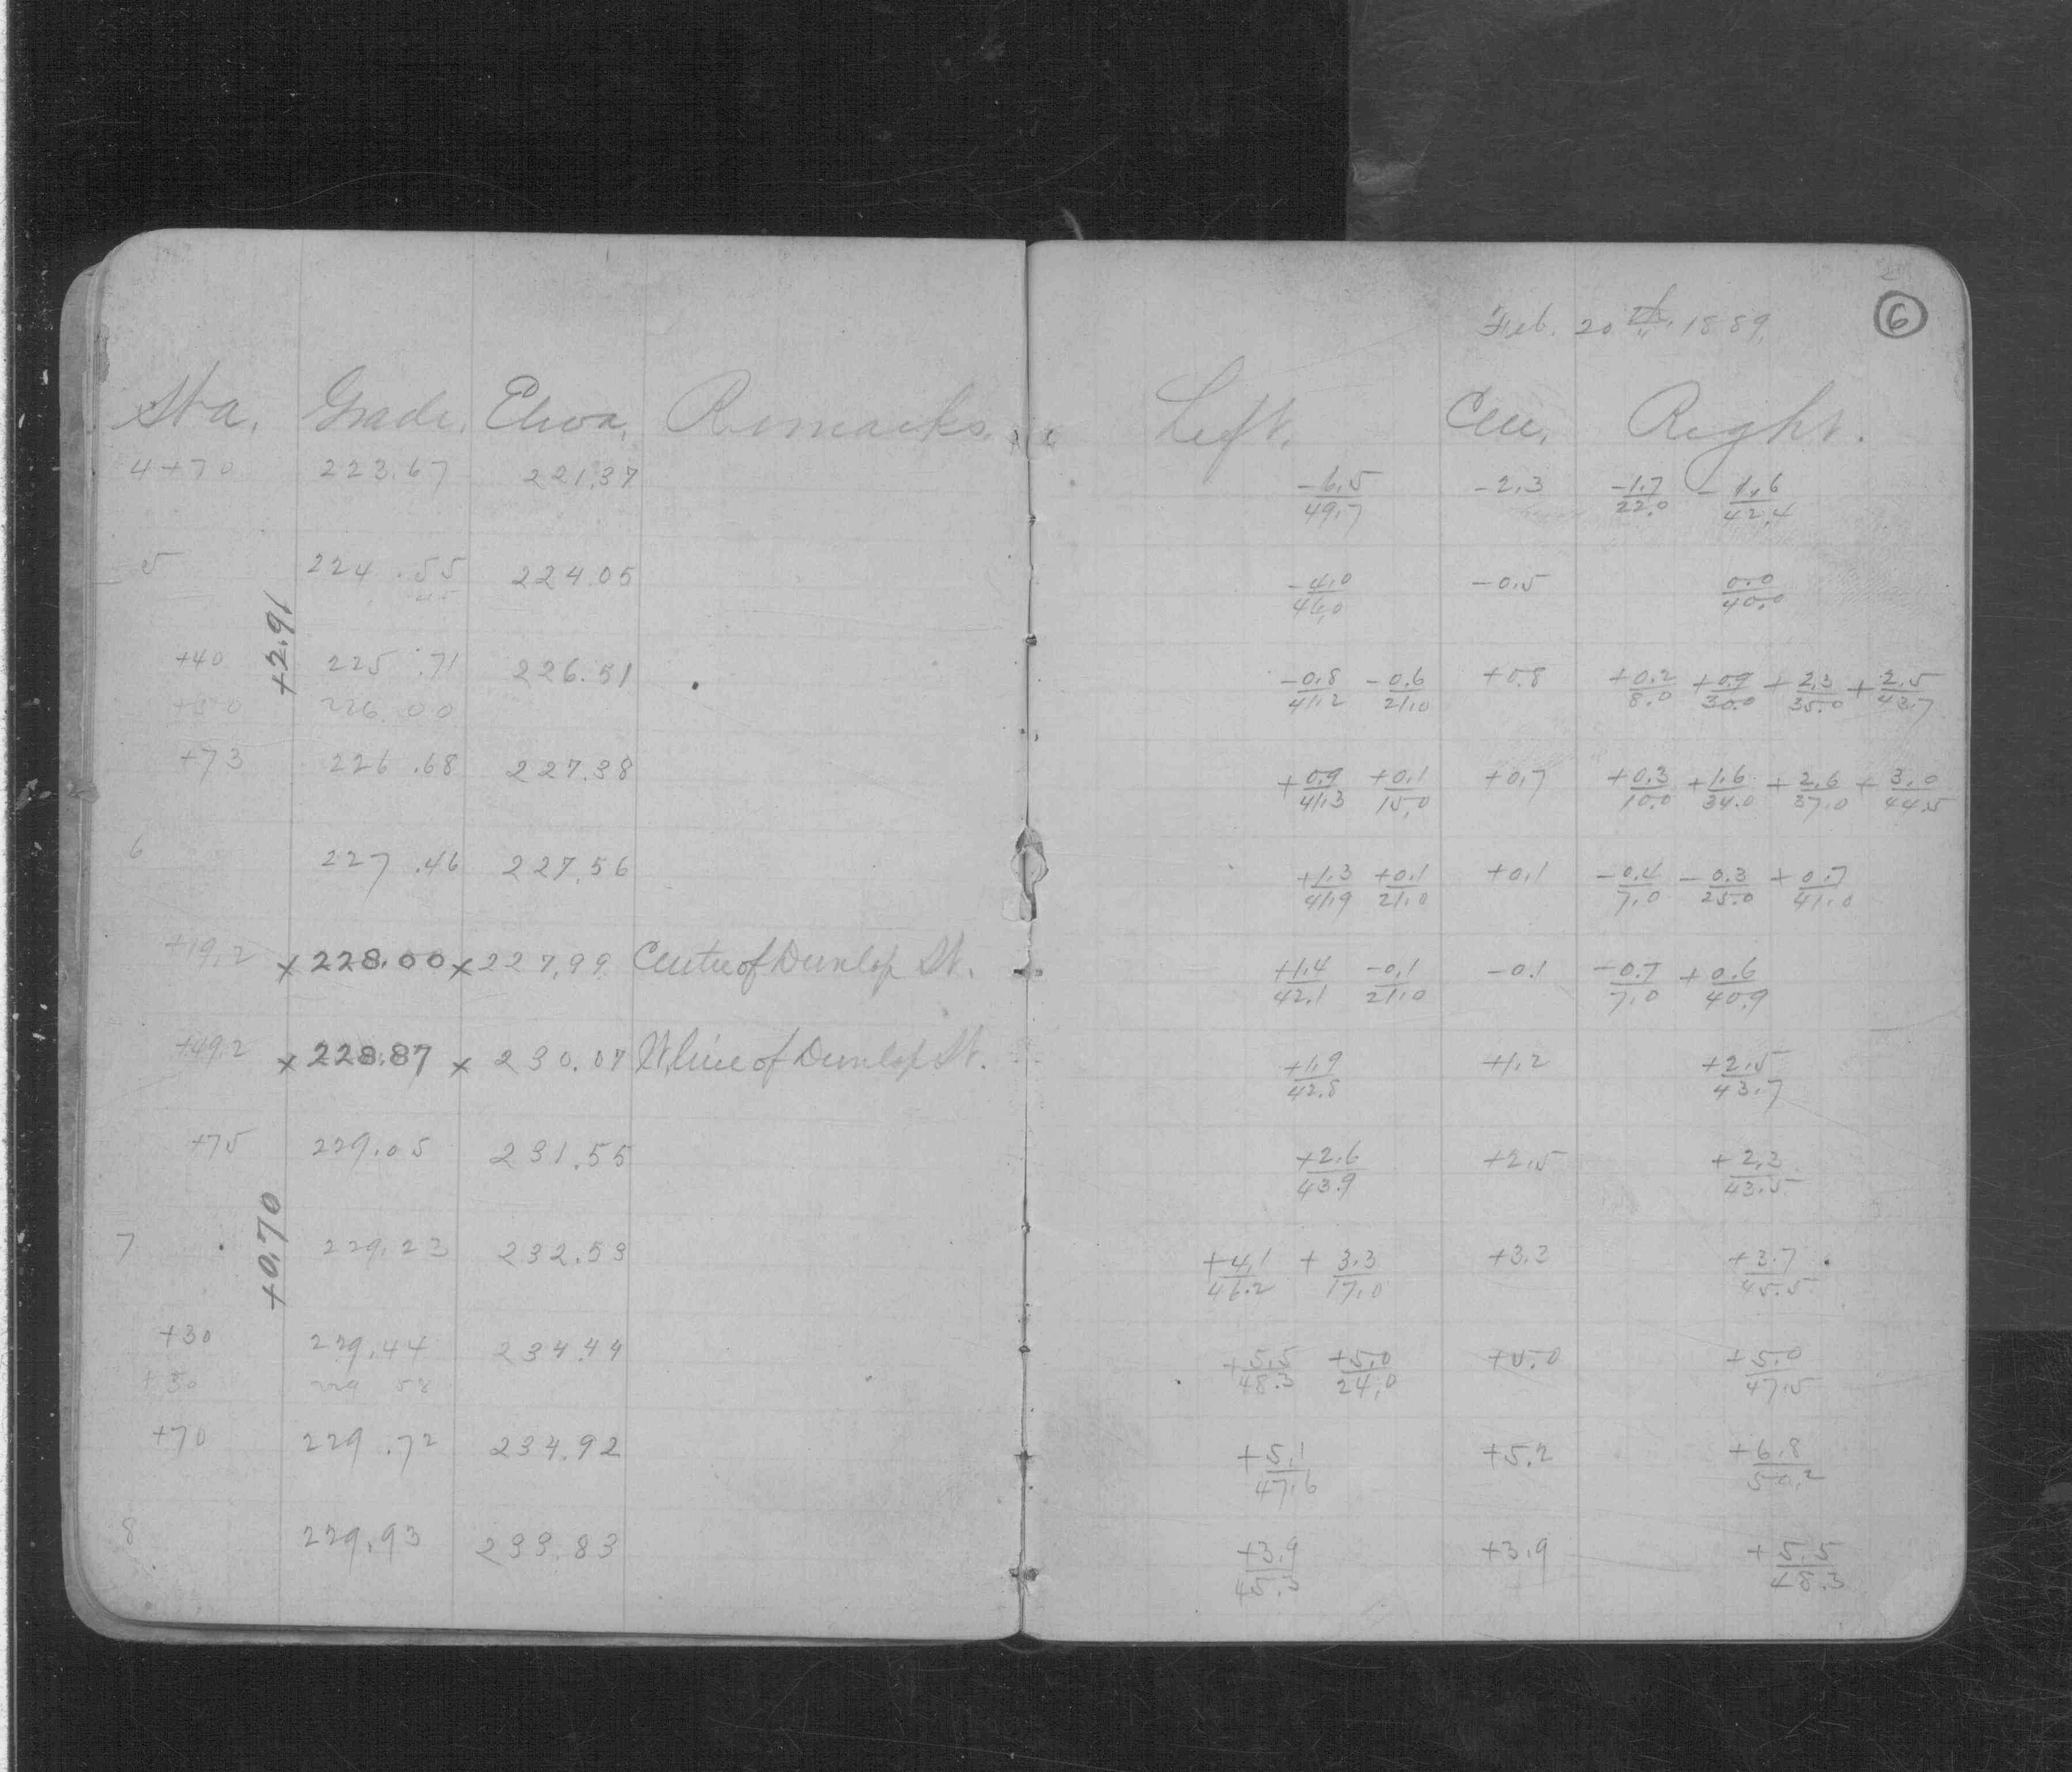 Feb. 20th, 1889. 6
Sta. Grade. Eleva. Remarks. Left. Cen. Right.
4+70 223.67 221.37 -6.5/49.7 -2.3 -1.7/22.0 -1.6/42.4
5 224.55 224.05 -4.0/46.0 -0.5 0.0/40.0
+2.91
+40 225.71 226.51 -0.8/41.2 -0.6/21.0 +0.8 +0.2/8.0 +0.9/30.0 +2.3/35.0 +2.5/43.7
+50 226.00
+73 226.68 227.38 +0.9/41.3 +0.1/15.0 +0.7 +0.3/10.0 +1.6/34.0 +2.6/37.0 +3.0/44.5
6 227.46 227.56 +1.3/41.9 +0.1/21.0 +0.1 -0.4/7.0 -0.3/25.0 +0.7/41.0
+19.2 x 228.00 x 227.99 Centre of Dunlop St. +1.4/42.1 -0.1/21.0 -0.1 -0.7/7.0 +0.6/40.9
+49.2 x 228.87 x 230.07 W. line of Dunlop St. +1.9/42.8 +1.2 +2.5/43.7
+75 229.05 231.55 +2.6/43.9 +2.5 +2.3/43.5
+0.70
7 229.23 232.53 +4.1/46.2 +3.3/17.0 +3.3 +3.7/45.5
+30 229.44 234.44 +5.5/48.3 +5.0/24.0 +5.0 +5.0/47.5
+50 229 58
+70 229.72 234.92 +5.1/47.6 +5.2 +6.8/50.2
8 229.93 233.83 +3.9/45.3 +3.9 +5.5/48.3